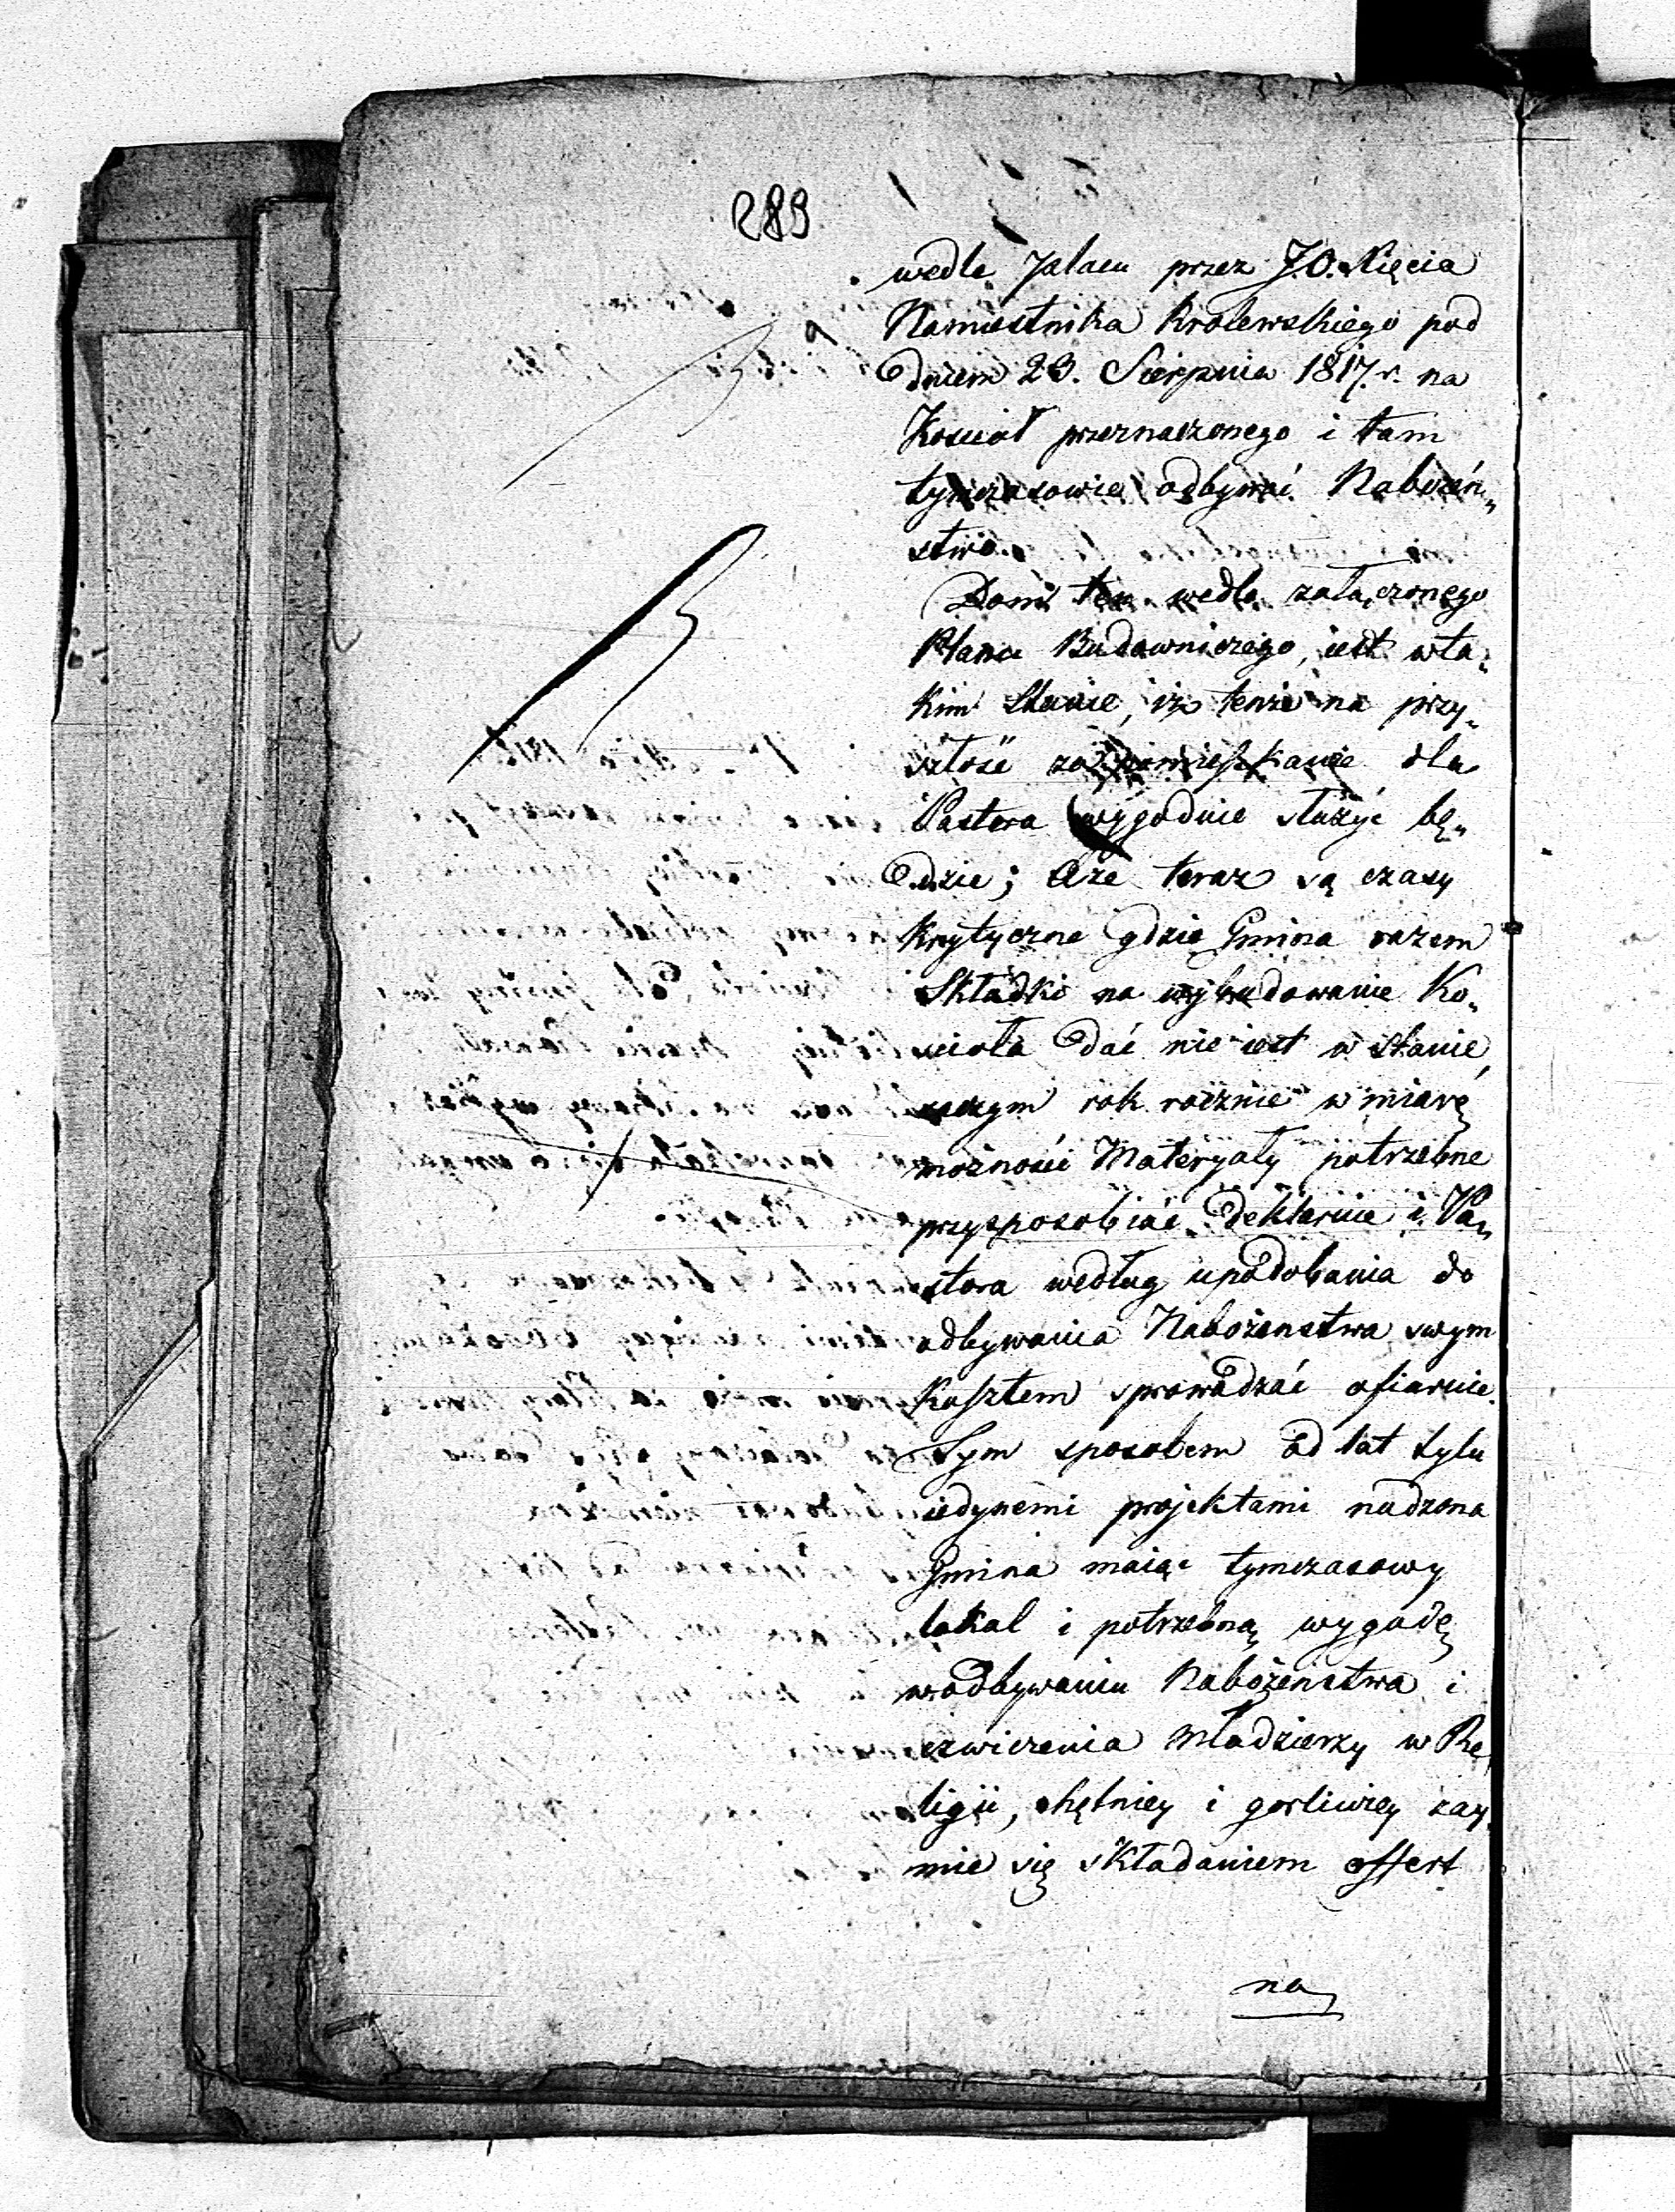 289
wedle Placu przez JO. Xięcia
Namiestnika Krolewskiego pod
dniem 23. Sierpnia 1817. r. na
Koscioł przeznaczonego i tam
tymczasowie odbywać Naboźeń„
stwo.
Dom ten wedle załączonego
Planu Budowniczego, iest wta„
kim Stanie, iż tenże na przy„
szłość za pomieszkanie dla
Pastora wygodnie służyć bę„
dzie; Aże teraz są czasy
krytyczne gdzie Gmina razem
Składki na wybudowanie Ko„
ścioła dać nie iest w Stanie,
rok rocznie w miarę
możności Materyały potrzebne
przysposobiać deklaruie i Pa„
stora według upodobania do
odbywania Nabożenstwa swym
Kosztem sprowadzać ofiaruie.
Tym sposobem od lat tylu
iedynemi projektami nudzona
Gmina maiąc tymczasowy
lokal i potrzebną wygodę
w odbywaniu Nabożeństwa i
czwiczenia Młodzierzy w Re„
ligii, chętniey i gorliwiey zay„
mie się składaniem offert
na